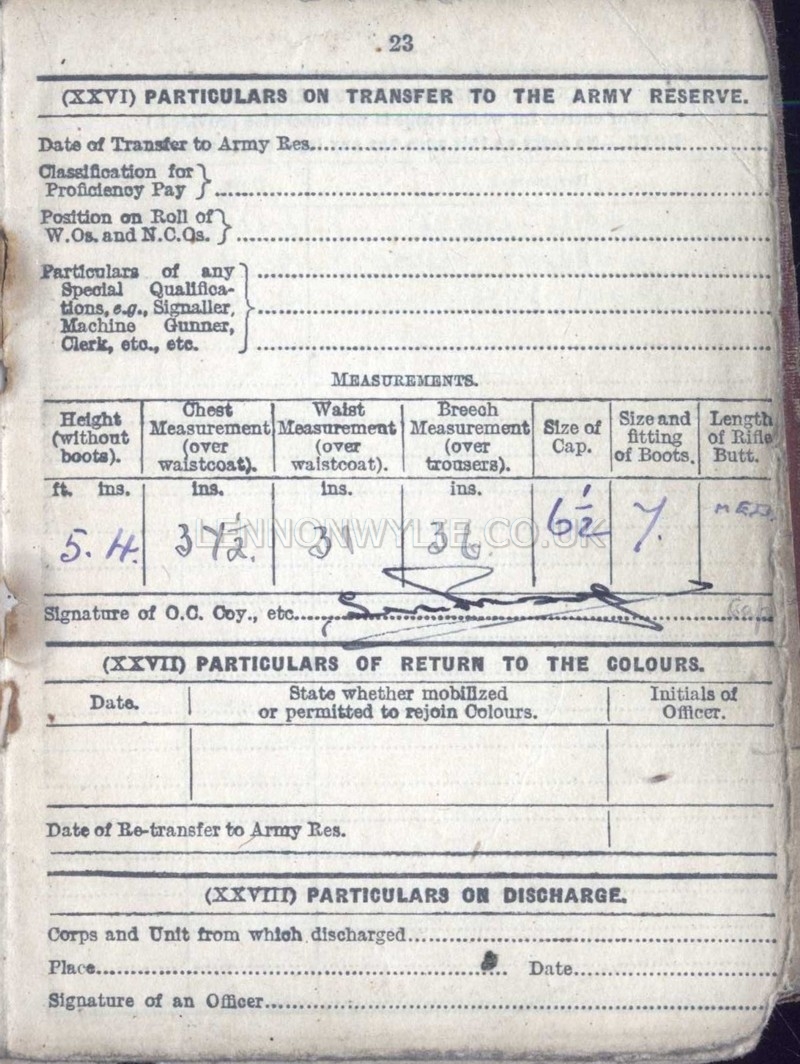 23
(XXVI) PARTICULARS ON TRANSFER TO THE ARMY RESERVE.
Date of Transfer to Army Res.
Classification for
Proficiency Pay }
Position on Roll of
W.Os. and N.C.Os. }
Particulars of any
Special Qualifica-
tions, e.g., Signaller,
Machine Gunner,
Clerk, etc., etc. }
MEASUREMENTS.
Height (without boots). Chest Measurement (over waistcoat). Waist Measurement (over waistcoat). Breech Measurement (over trousers). Size of Cap. Size and fitting of Boots. Length of Rifle Butt.
ft. ins. ins. ins. ins.
5. 4. 34½. 31 36 6½ 7. MED.
LENNONWYLIE.CO.UK
Signature of O.C. Coy., etc.
(XXVII) PARTICULARS OF RETURN TO THE COLOURS.
Date. State whether mobilized or permitted to rejoin Colours. Initials of Officer.
Date of Re-transfer to Army Res.
(XXVIII) PARTICULARS ON DISCHARGE.
Corps and Unit from which discharged
Place Date
Signature of an Officer